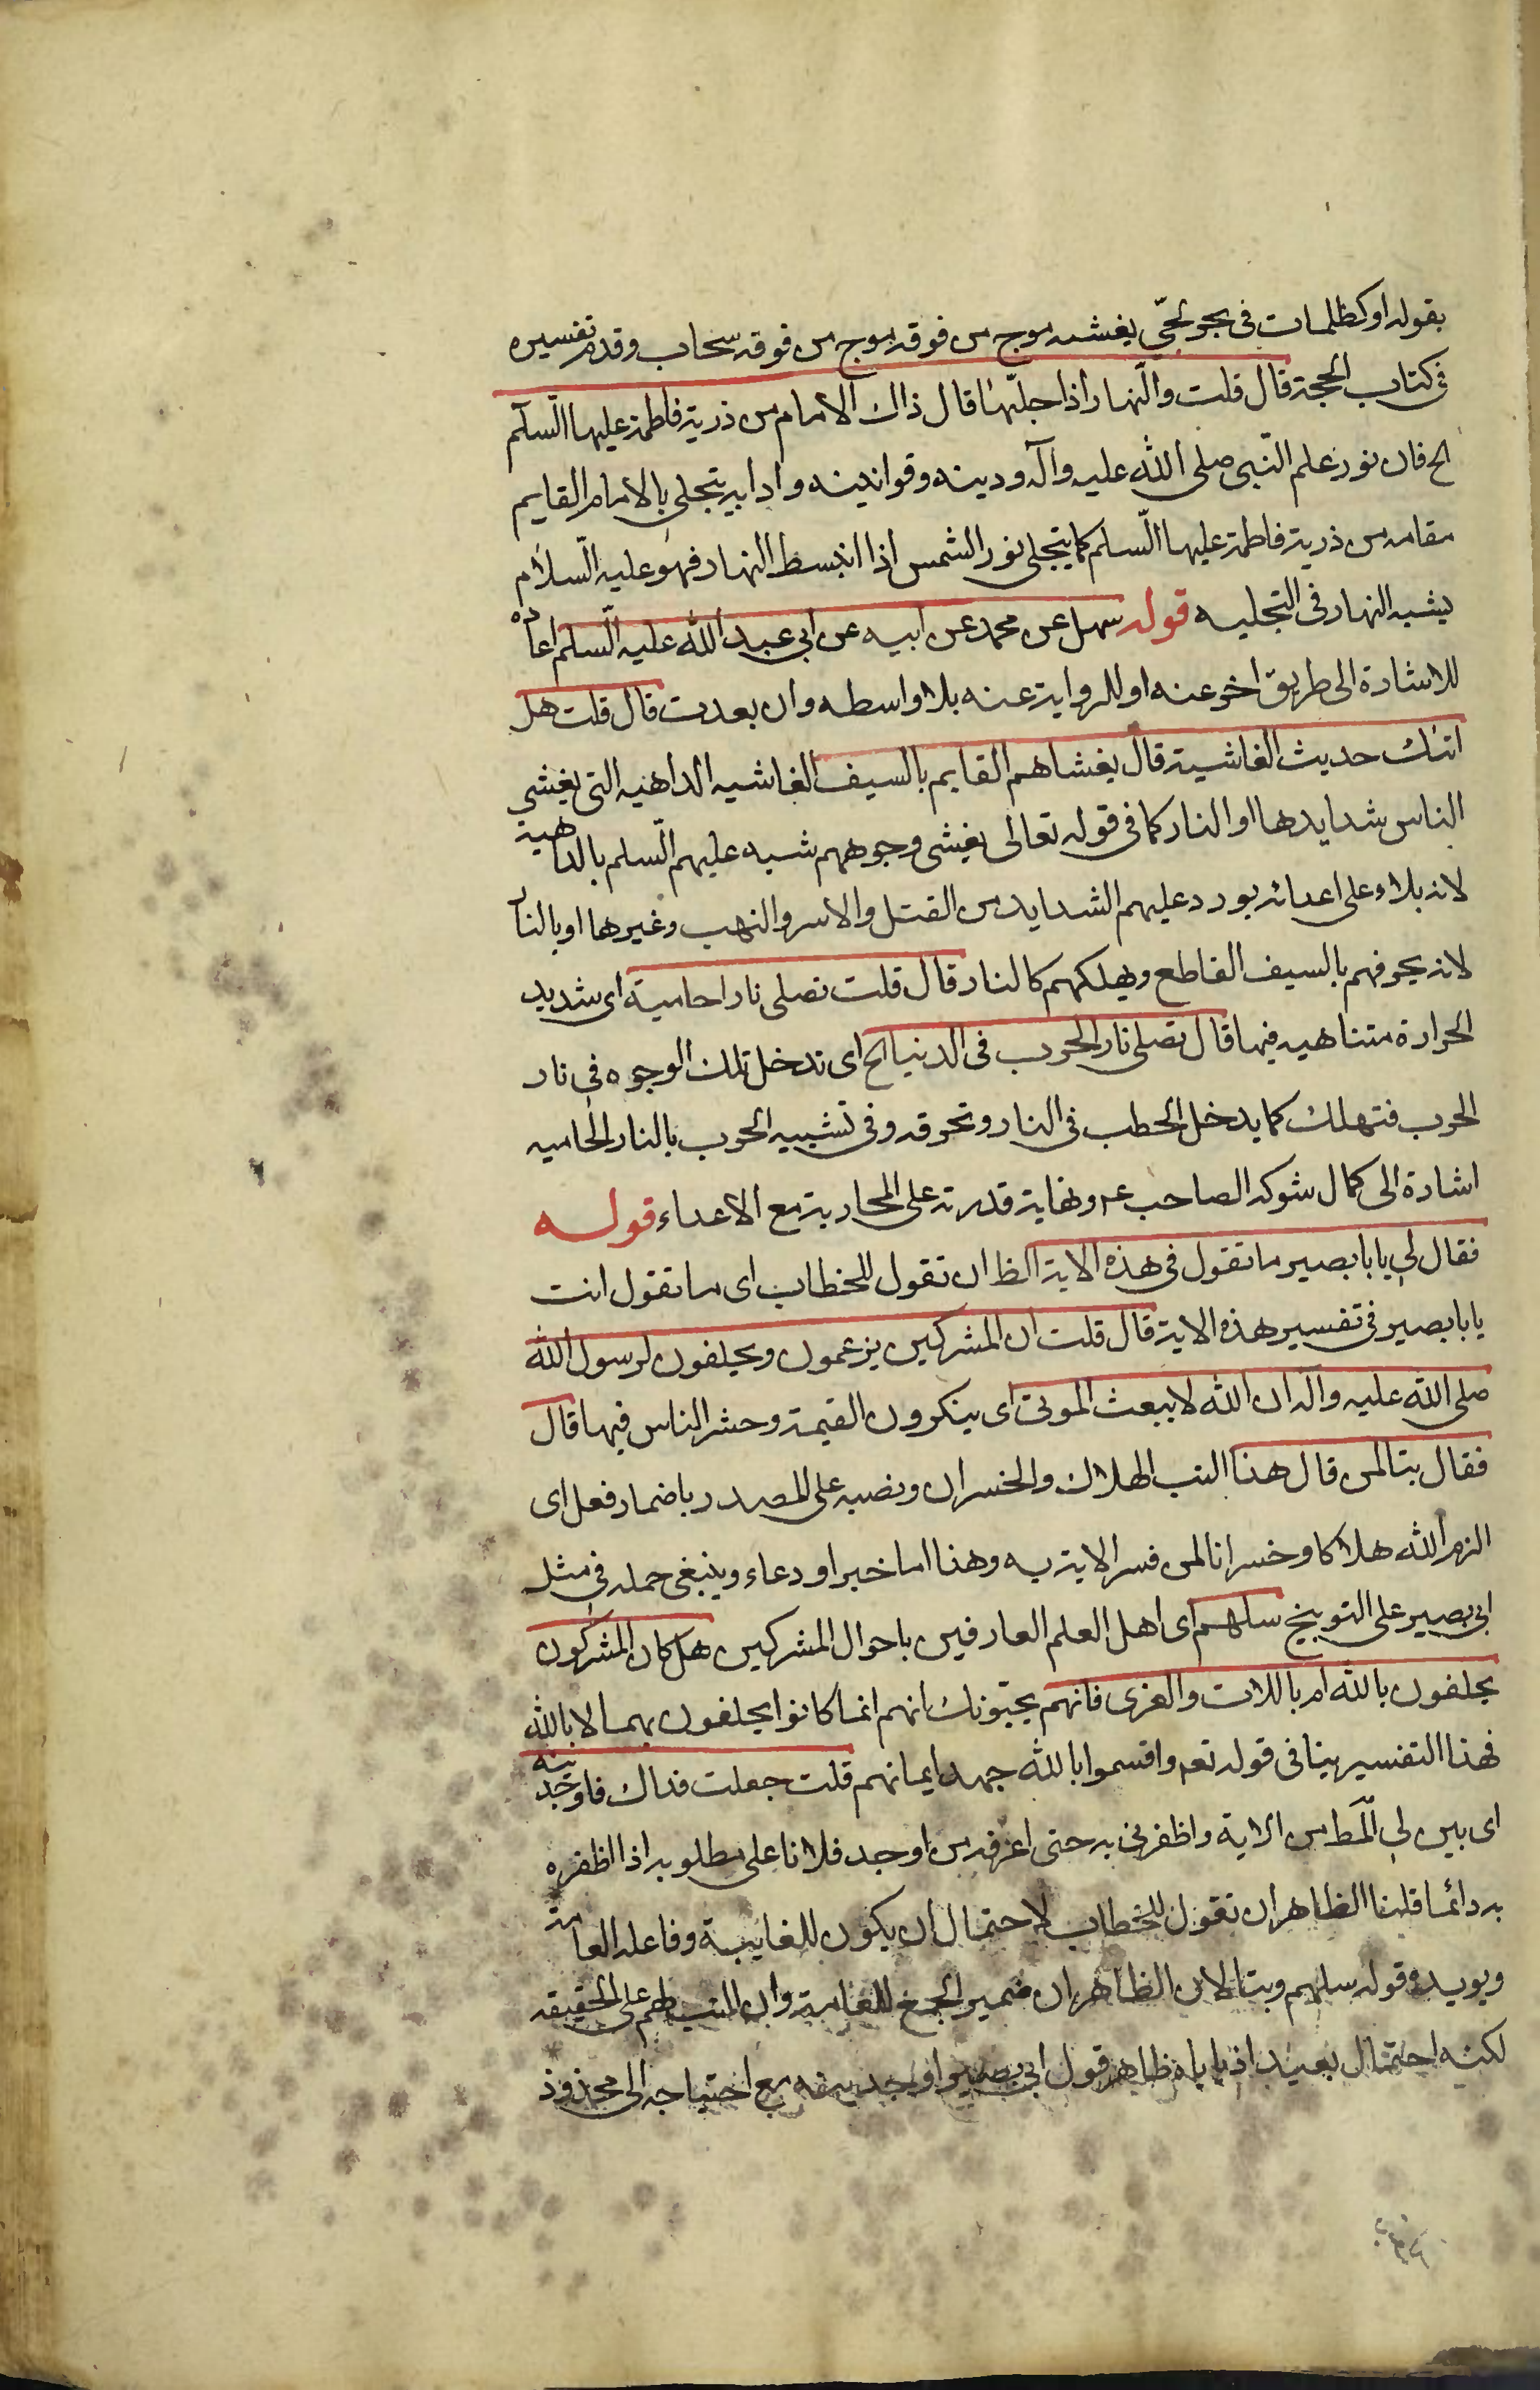 بقوله او كظلمات فى بحر لجّى يغشيه موج من فوقه موج من فوقه سحاب وقد مر تفسيره
فى كتاب الحجة قال قلت والنّهار اذا جلّيها قال ذاك الامام من ذرية فاطمة عليها السّلم
الخ فان نور علم النّبى صلى الله عليه وآله ودينه وقوانينه وادابه يتجلى بالامام القايم
مقامه من ذرية فاطمة عليها السّلم كما يتجلى نور الشمس اذا انبسط النهار فهو عليه السّلام
يشبه النهار فى التجليه قوله سهل عن محمد عن ابيه عن ابى عبد الله عليه السّلم اعاده
للاشارة الى طريق اخر عنه او للرواية عنه بلا واسطه وان بعدت قال قلت هل
اتيك حديث الغاشية قال يغشاهم القايم بالسيف الغاشيه الداهيه التى يغشى
الناس شدايدها او النار كما فى قوله تعالى يغشى وجوههم شبه عليهم السّلم بالداهية
لانه بلاء على اعدائه يورد عليهم الشدايد من القتل والاسر والنهب وغيرها او بالنار
لانه يحرفهم بالسيف القاطع ويهلكهم كالنار قال قلت تصلى نارا حامية اى شديد
الحرارة متناهيه فيها قال تصلى نار الحرب فى الدنيا الخ اى تدخل تلك الوجوه فى نار
الحرب فتهلك كما يدخل الحطب فى النار وتحرقه وفى تشبيه الحرب بالنار الحاميه
اشارة الى كمال شوكه الصاحب ع ونهاية قدرته على المحاربة مع الاعداء قوله
فقال لى يابا بصير ما تقول فى هذه الاية الظ ان تقول للخطاب اى ما تقول انت
يابا بصير فى تفسير هذه الاية قال قلت ان المشركين يزعمون ويحلفون لرسول الله
صلى الله عليه واله ان الله لا يبعث الموتى اى ينكرون القيمة وحشر الناس فيها قال
فقال تبا لمن قال هذا التب الهلاك والخسران ونصبه على المصدر باضمار فعل اى
الزم الله هلاكا وخسرانا لمن فسر الاية به وهذا اما خبر او دعاء وينبغى حمله فى مثل
ابى بصير على التوبيخ سلهم اى اهل العلم العارفين باحوال المشركين هل كان المشركون
يحلفون بالله ام باللات والعزى فانهم يجيبونك انهم انما كانوا يحلفون بهما لا بالله
فهذا التفسير ينافى قوله تعم واقسموا بالله جهد ايمانهم قلت جعلت فداك فاوجدنيه
اى بين لى المط من الاية واظفرنى به حتى اعرفه من اوجد فلانا على مطلوبه اذا اظفره
به دائما قلنا الظاهر ان تقول للخطاب لاحتمال ان يكون للغايبة وفاعله العامة
ويويده قوله سلهم وتبا لان الظاهر ان ضمير الجمع للعامة وان التب لهم على الحقيقه
لكنه احتمال بعيد اذ ياباه ظاهر قول ابى بصير اوجدنيه مع احتياجه الى محذوف